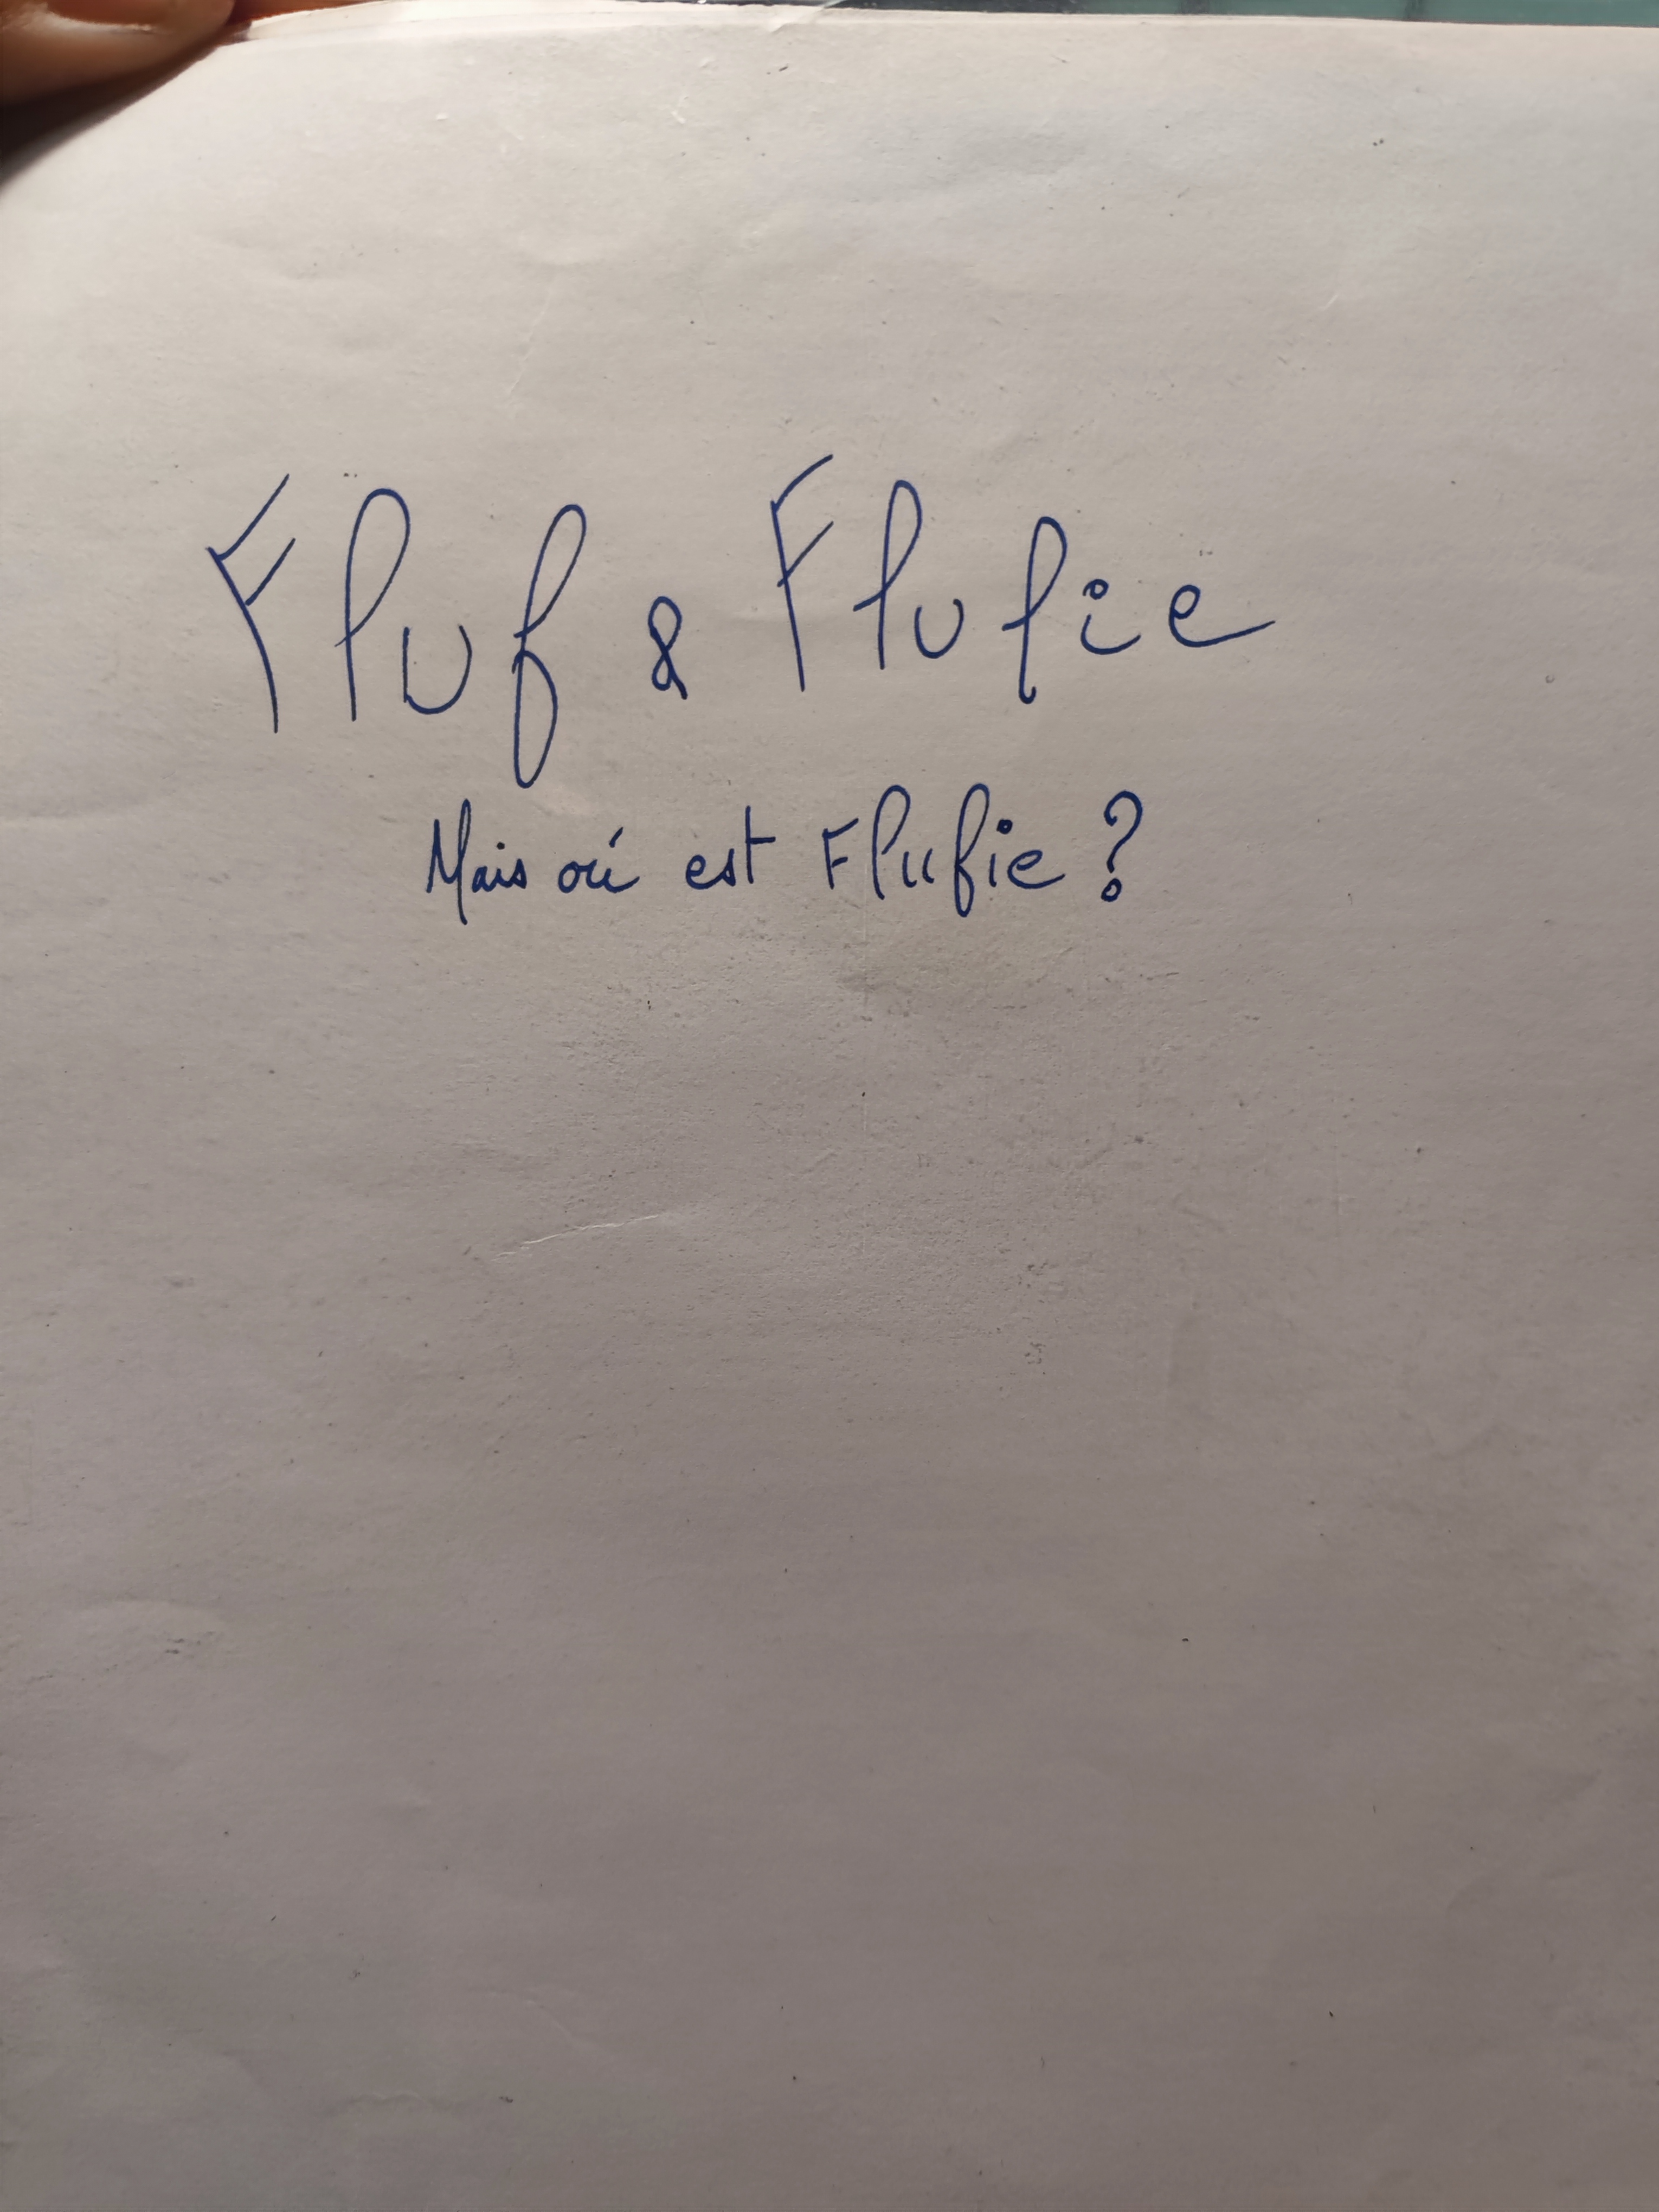 Fluf & Flufie
Mais où est Flufie ?